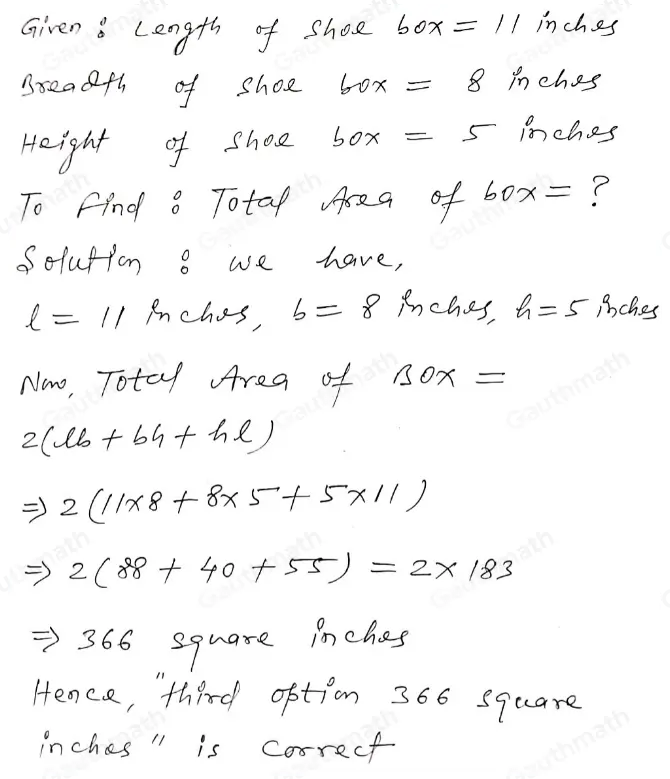 Given : Length of shoe box = 11 inches
Breadth of shoe box = 8 inches
Height of shoe box = 5 inches
To find : Total Area of box = ?
Solution : we have,
l = 11 inches, b = 8 inches, h = 5 inches
Now, Total Area of Box =
2(lb + bh + hl)
⇒ 2(11×8 + 8×5 + 5×11)
⇒ 2(88 + 40 + 55) = 2×183
⇒ 366 square inches
Hence, "third option 366 square
inches" is correct